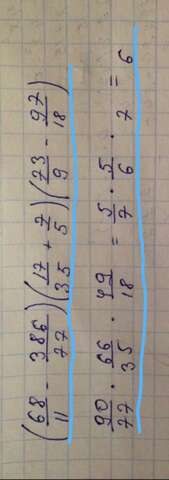 (68/11 - 386/77)(17/35 + 7/5)(73/9 - 97/18)
90/77 · 66/35 · 49/18 = 5/7 · 5/6 · 7 = 6